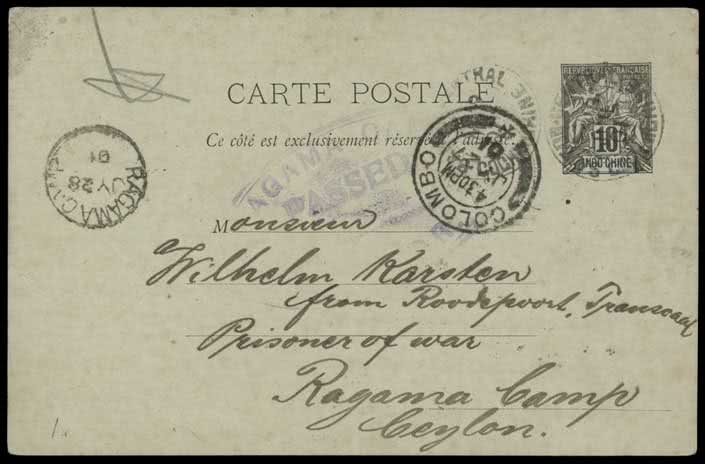 CARTE POSTALE
RÉPUBLIQUE FRANÇAISE
10
INDO-CHINE
Ce côté est exclusivement réservé à l'adresse.
RAGAMA CAMP
JY 28
01
RAGAMA
PASSED
COLOMBO
4 30 PM
JY
01
Monsieur
Wilhelm Karsten
from Roodepoort, Transvaal
Prisoner of war
Ragama Camp
Ceylon.